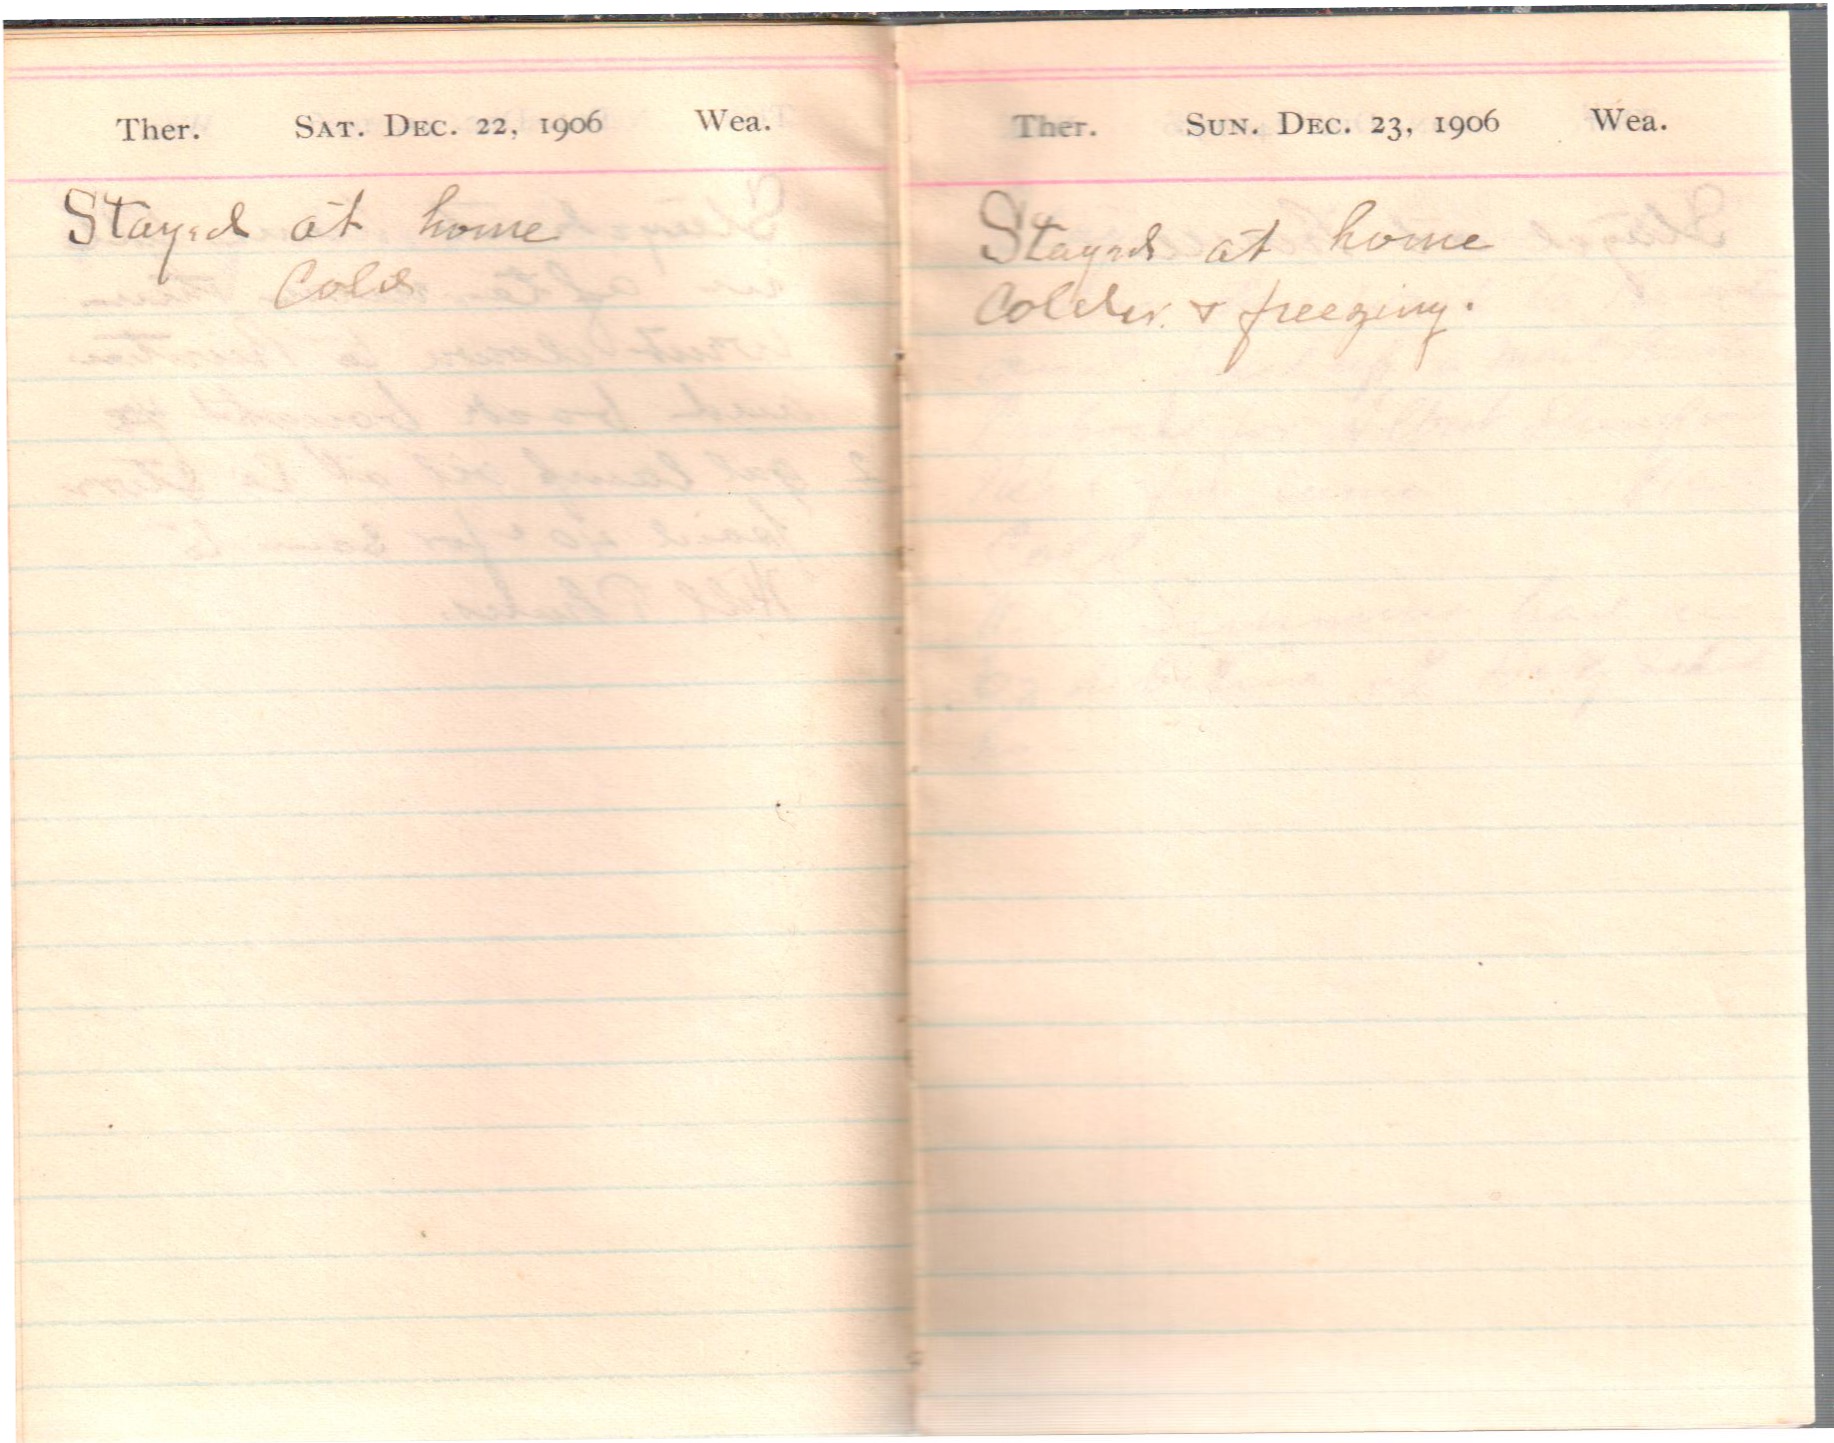 Ther. Sat. Dec. 22, 1906 Wea.
Stayed at home
Cold
Ther. Sun. Dec. 23, 1906 Wea.
Stayed at home
Colder & freezing.